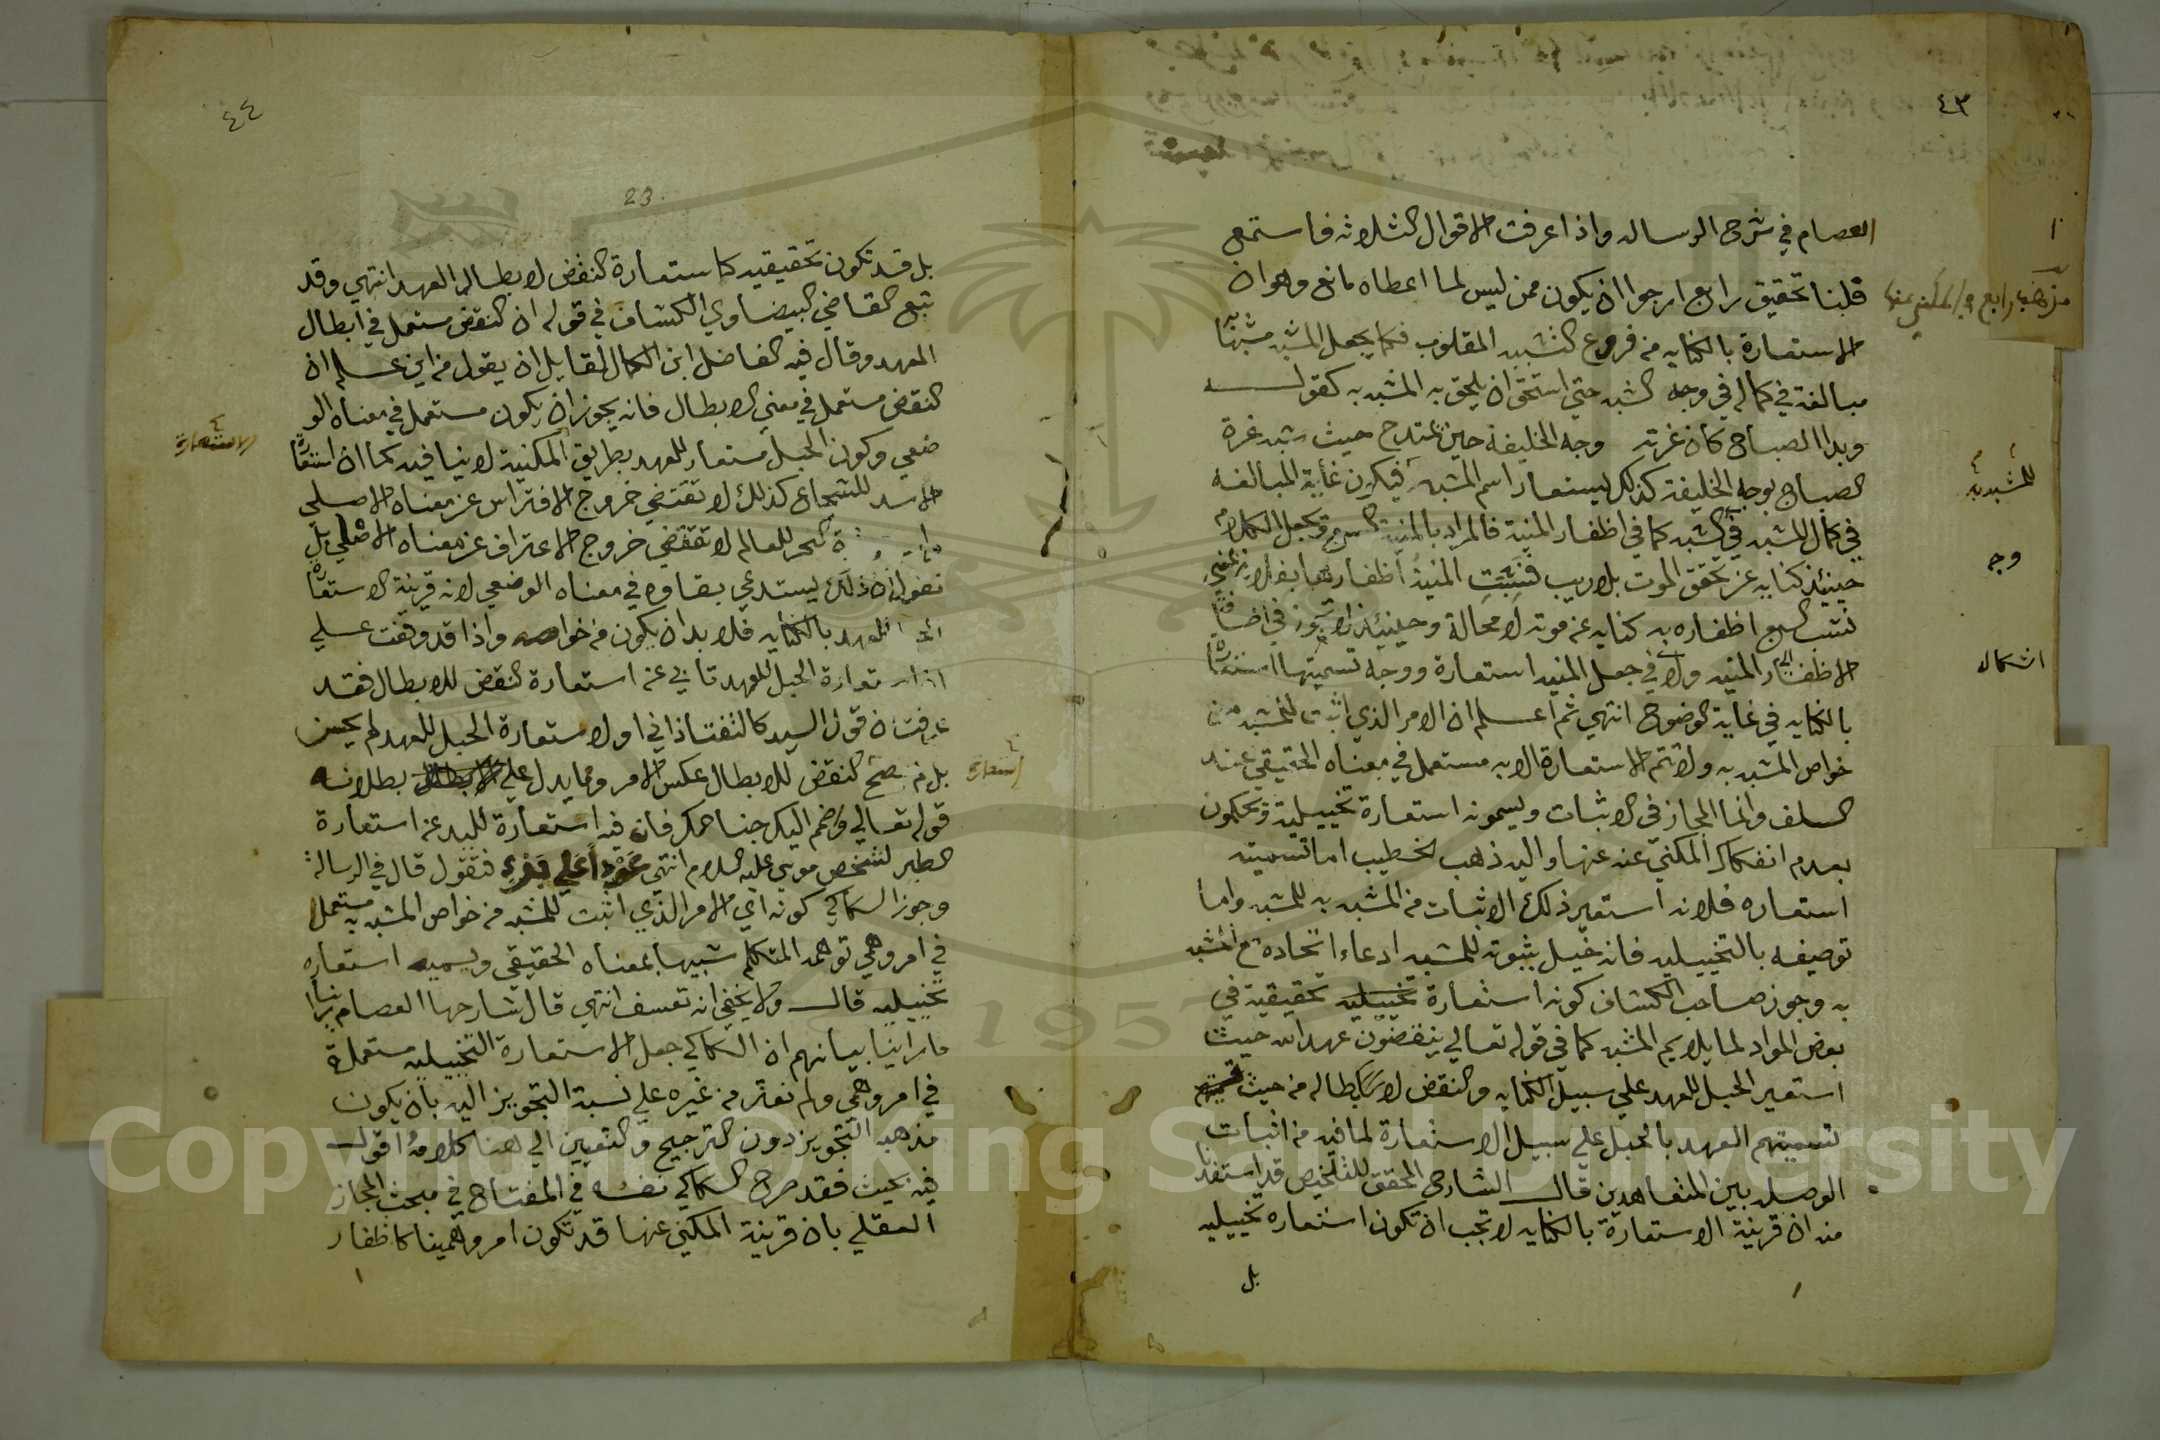 ٤٣
العصام في شرح الرساله واذا عرفت الاقوال الثلاثه فاستمع
قلنا تحقيق رابع ارجوا ان يكون ممن ليس لما اعطاه مانع وهو ان
الاستعارة بالكنايه من فروع التشبيه المقلوب فكما يجعل المشبه مشبها به
مبالغة في كماله في وجه الشبه حتي استحق ان يلحق به المشبه به كقوله
وبدا الصباح كان غرته وجه الخليفة حين يمتدح حيث شبه غرة
الصباح بوجه الخليفة كذلك يستعار اسم المشبه فيكون غاية المبالغه
في كمال المشبه في الشبه كما في اظفار المنية فالمراد بالمنية السبع ويجعل الكلام
حينئذ كنايه عن تحقق الموت بلا ريب فنشبت المنية اظفارها بفلان
نشب السبع اظفاره به كنايه عن موته لا محالة وحينئذ لا تجوز في اضافة
الاظفار الي المنيه ولا في جعل المنيه استعارة ووجه تسميتها استعارة
بالكنايه في غاية الوضوح انتهي ثم اعلم ان الامر الذي اثبت للمشبه من
خواص المشبه به ولا تتم الاستعارة الا به مستعمل في معناه الحقيقي عند
السلف وانما المجاز في الاثبات ويسمونه استعارة تخييلية ويحكمون
بعدم انفكاك المكني عنه عنها واليه ذهب الخطيب اما تسميته
استعاره فلانه استعير ذلك الاثبات من المشبه به للمشبه واما
توصيفه بالتخييليه فانه خيل ثبوته للمشبه ادعاء اتحاده مع المشبه
به وجوز صاحب الكشاف كونه استعارة تخييليه تحقيقية في
بعض المواد لما يلايم المشبه كما في قوله تعالي ينقضون عهد الله حيث
استعير الحبل للعهد علي سبيل الكنايه والنقض لابطاله من حيث
تسميتهم العهد بالحبل علي سبيل الاستعارة لما فيه من اثبات
الوصله بين المتعاهدين قال الشارح المحقق للتلخيص قد استفدنا
منه ان قرينة الاستعارة بالكنايه لا تجب ان تكون استعاره تخييليه
بل
مذهب رابع في المكني عنها
للمشبه به
وجه
اشكال
٤٤
23
بل قد تكون تحقيقيه كاستعارة النقض لابطال العهد انتهي وقد
تبع القاضي البيضاوي الكشاف في قوله ان النقض مستعمل في ابطال
العهد وقال فيه الفاضل ابن الكمال لقايل ان يقول من اين علم ان
النقض مستعمل في معني الابطال فانه يجوز ان يكون مستعمل في معناه الو
ضعي وكون الحبل مستعار للعهد بطريق المكنية لا ينافيه كما ان استعارة
الاسد للشجاع كذلك لا تقتضي خروج الافتراس عن معناه الاصلي
ة البحر للعالم لا تقتضي خروج الاعتراف عن معناه الاصلي بل
نقول ان ذلك يستدعي بقاوه في معناه الوضعي لانه قرينة الاستعارة
للعهد بالكنايه فلا بد ان يكون من خواصه واذا قد وقفت علي
استعارة الحبل للعهد تابي عن استعارة النقض للابطال فقد
عرفت ان قول السيد كالتفتازاني اولا استعارة الحبل للعهد لم يحسن
بل لم يصح النقض للابطال عكس الامر ومما يدل علي بطلانه
قوله تعالي واضمم اليك جناحك فان فيه استعارة لليد عن استعارة
الطير لشخص موسي عليه السلام انتهي عودا علي بدء فنقول قال في الرسالة
وجوز السكاكي كونه اي الامر الذي اثبت للمشبه من خواص المشبه به مستعمل
في امر وهمي توهمه المتكلم شبيها بمعناه الحقيقي ويسميه استعاره
تخييليه قال ولا يخفي انه تعسف انتهي قال شارحها العصام
ما راينا بيانهم ان السكاكي جعل الاستعارة التخييليه مستعملة
في امر وهمي ولم نعثر من غيره علي نسبة التجويز اليه بان يكون
مذهبه التجويز دون الترجيح والتعيين الي هنا كلامه اقول
فيه بحيث فقد صرح السكاكي نفسه في المفتاح في مبحث المجاز
العقلي بان قرينة المكني عنها قد تكون امر وهميا كاظفار
الاستعارة
استعارة
Copyright © King Saud University
1957